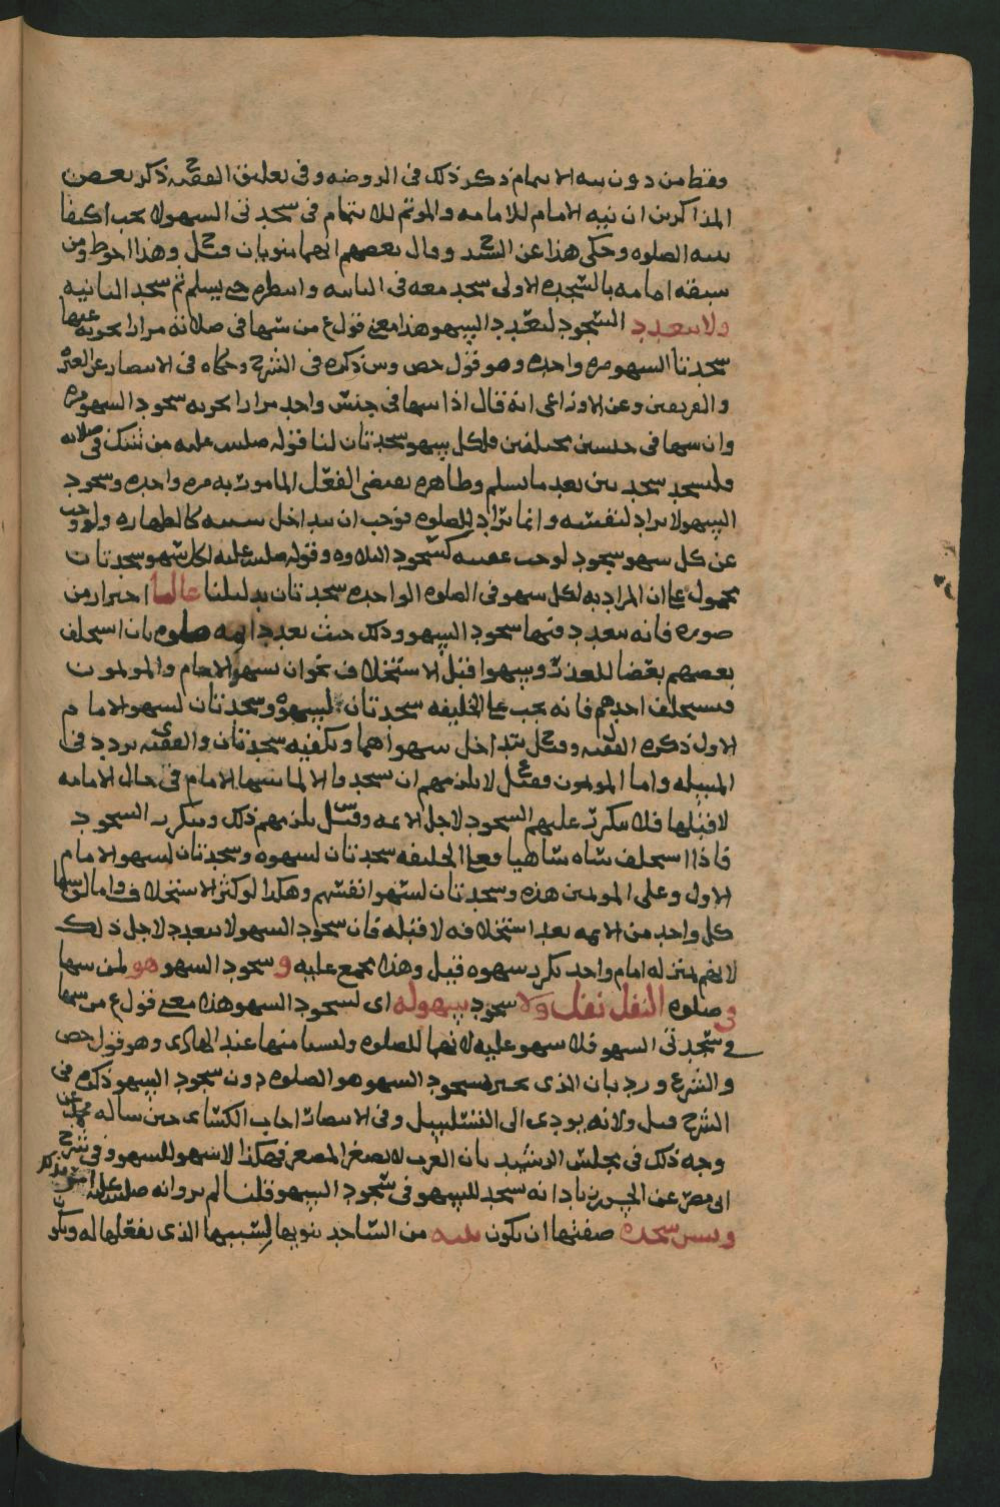 وفقط من دون نيه الاىمام ذكر ذلك فى الروضه وفى تعليق الفقيه ذكر بعض
المذاكرين ان نيه الامام للامامه والموتم للايتمام فى سجدتى السهو لا يجب اكتفا
بنيه الصلوه وحكى هذا عن السيد وقال بعضهم انهما ينويان وقيل وهذا احوط ومن
سبقه امامه بالسجده الاولى سجد معه فى الثانيه وانتظره حتى يسلم ثم سجد الثانيه
ولا يتعدد السجود لتعدد السهو هذا معنى قول ع من سها فى صلاته مرارا يجزيه عنها
سجدتا السهو مره واحده وهو قول حص وس ذكره فى الشرح وحكاه فى الانتصار عن العتره
والفريقين وعن الاوزاعى انه قال اذا سها فى جنس واحد مرارا يجزيه سجود السهو مره
وان سها فى جنسين مختلفين فلكل سهو سجدتان لنا قوله صلى الله عليه من شك فى صلاته
فليسجد سجدتين بعد ما يسلم وظاهره يقتضى الفعل المامور به مره واحده وسجود
السهو لا يراد لنفسه وانما يراد للصلوه فوجب ان يتداخل سببه كالطهاره ولو وجب
عن كل سهو سجود لوجب عقيبه كسجود التلاوه وقوله صلى الله عليه لكل سهو سجدتان
محمول على ان المراد به لكل سهو فى الصلوه الواحده سجدتان بدليلنا غالبا احتراز من
صوره فانه يتعدد فيها سجود السهو وذلك حيث تعدد ائمه صلوه بان استخلف
بعضهم بعضا للعذر وسهوا قبل الاستخلاف نحو ان يسهو الامام والمؤتمون
فيستخلف احدهم فانه يجب على الخليفه سجدتان لسهوه وسجدتان لسهو الامام
الاول ذكره الفقيه وقيل يتداخل سهواهما ويكفيه سجدتان والفقيه تردد فى
المسئله واما المؤتمون فقيل لا يلزمهم ان يسجدوا الا لما سها الامام فى حال الامامه
لا قبلها فلا يتكرر عليهم السجود لاجل الائمه وقيل يلزمهم ذلك ويتكرر السجود
فاذا استخلف ساه ساهيا فعلى الخليفه سجدتان لسهوه وسجدتان لسهو الامام
الاول وعلى المؤتمين هذه وسجدتان لسهو انفسهم وهكذا لو كثر الاستخلاف واما لو سها
كل واحد من الائمه بعد استخلافه لا قبله فان سجود السهو لا يتعدد لاجل ذلك
لانهم بمنزله امام واحد تكرر سهوه قيل وهذا مجمع عليه وسجود السهو هو لمن سها
فى صلوه النفل نفل ولا سجود لسهوه اى لسجود السهو هذا معنى قول ع من سها
فى سجدتى السهو فلا سهو عليه لانهما للصلوه وليستا منها عند الهادى وهو قول حص
والشرع ورد بان الذى يجبر بسجود السهو هو الصلوه دون سجود السهو ذكره فى
الشرح قيل ولانه يودى الى التسلسل وفى الانتصار اجاب الكسائى حين ساله محمد بن
وجه ذلك فى مجلس الرشيد بان العرب لا تصغر المصغر فهكذا لا سهو للسهو وفى شرح
ابى مضر عن الحسن بن زياد انه يسجد للسهو فى سجود السهو قلنا لم يرو انه صلى الله عليه
ويسن سجده صفتها ان يكون بنيه من الساجد ينويها لسببها الذى يفعلها له ويكو